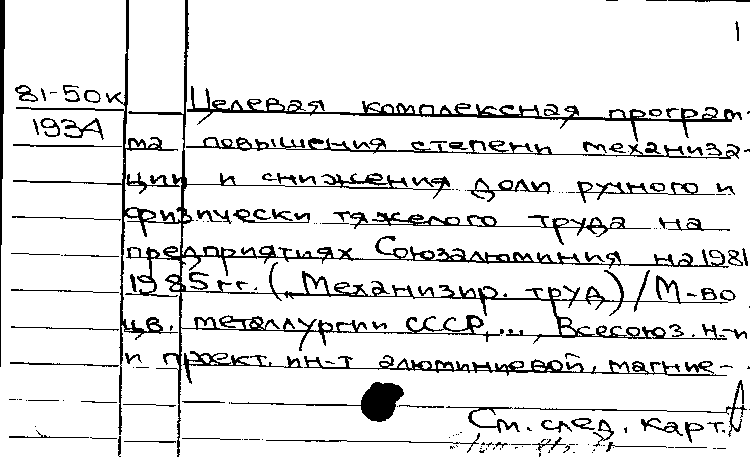 1
81-50к
1934
Целевая комплексная програм-
ма повышения степени механиза-
ции и снижения доли ручного и
физически тяжелого труда на
предприятиях Союзалюминия на 1981
1985 гг. („Механизир. труд) / М-во
цв. металлургии СССР, ..., Всесоюз. н.-и
и проект. ин-т алюминиевой, магние-
См. след. карт.